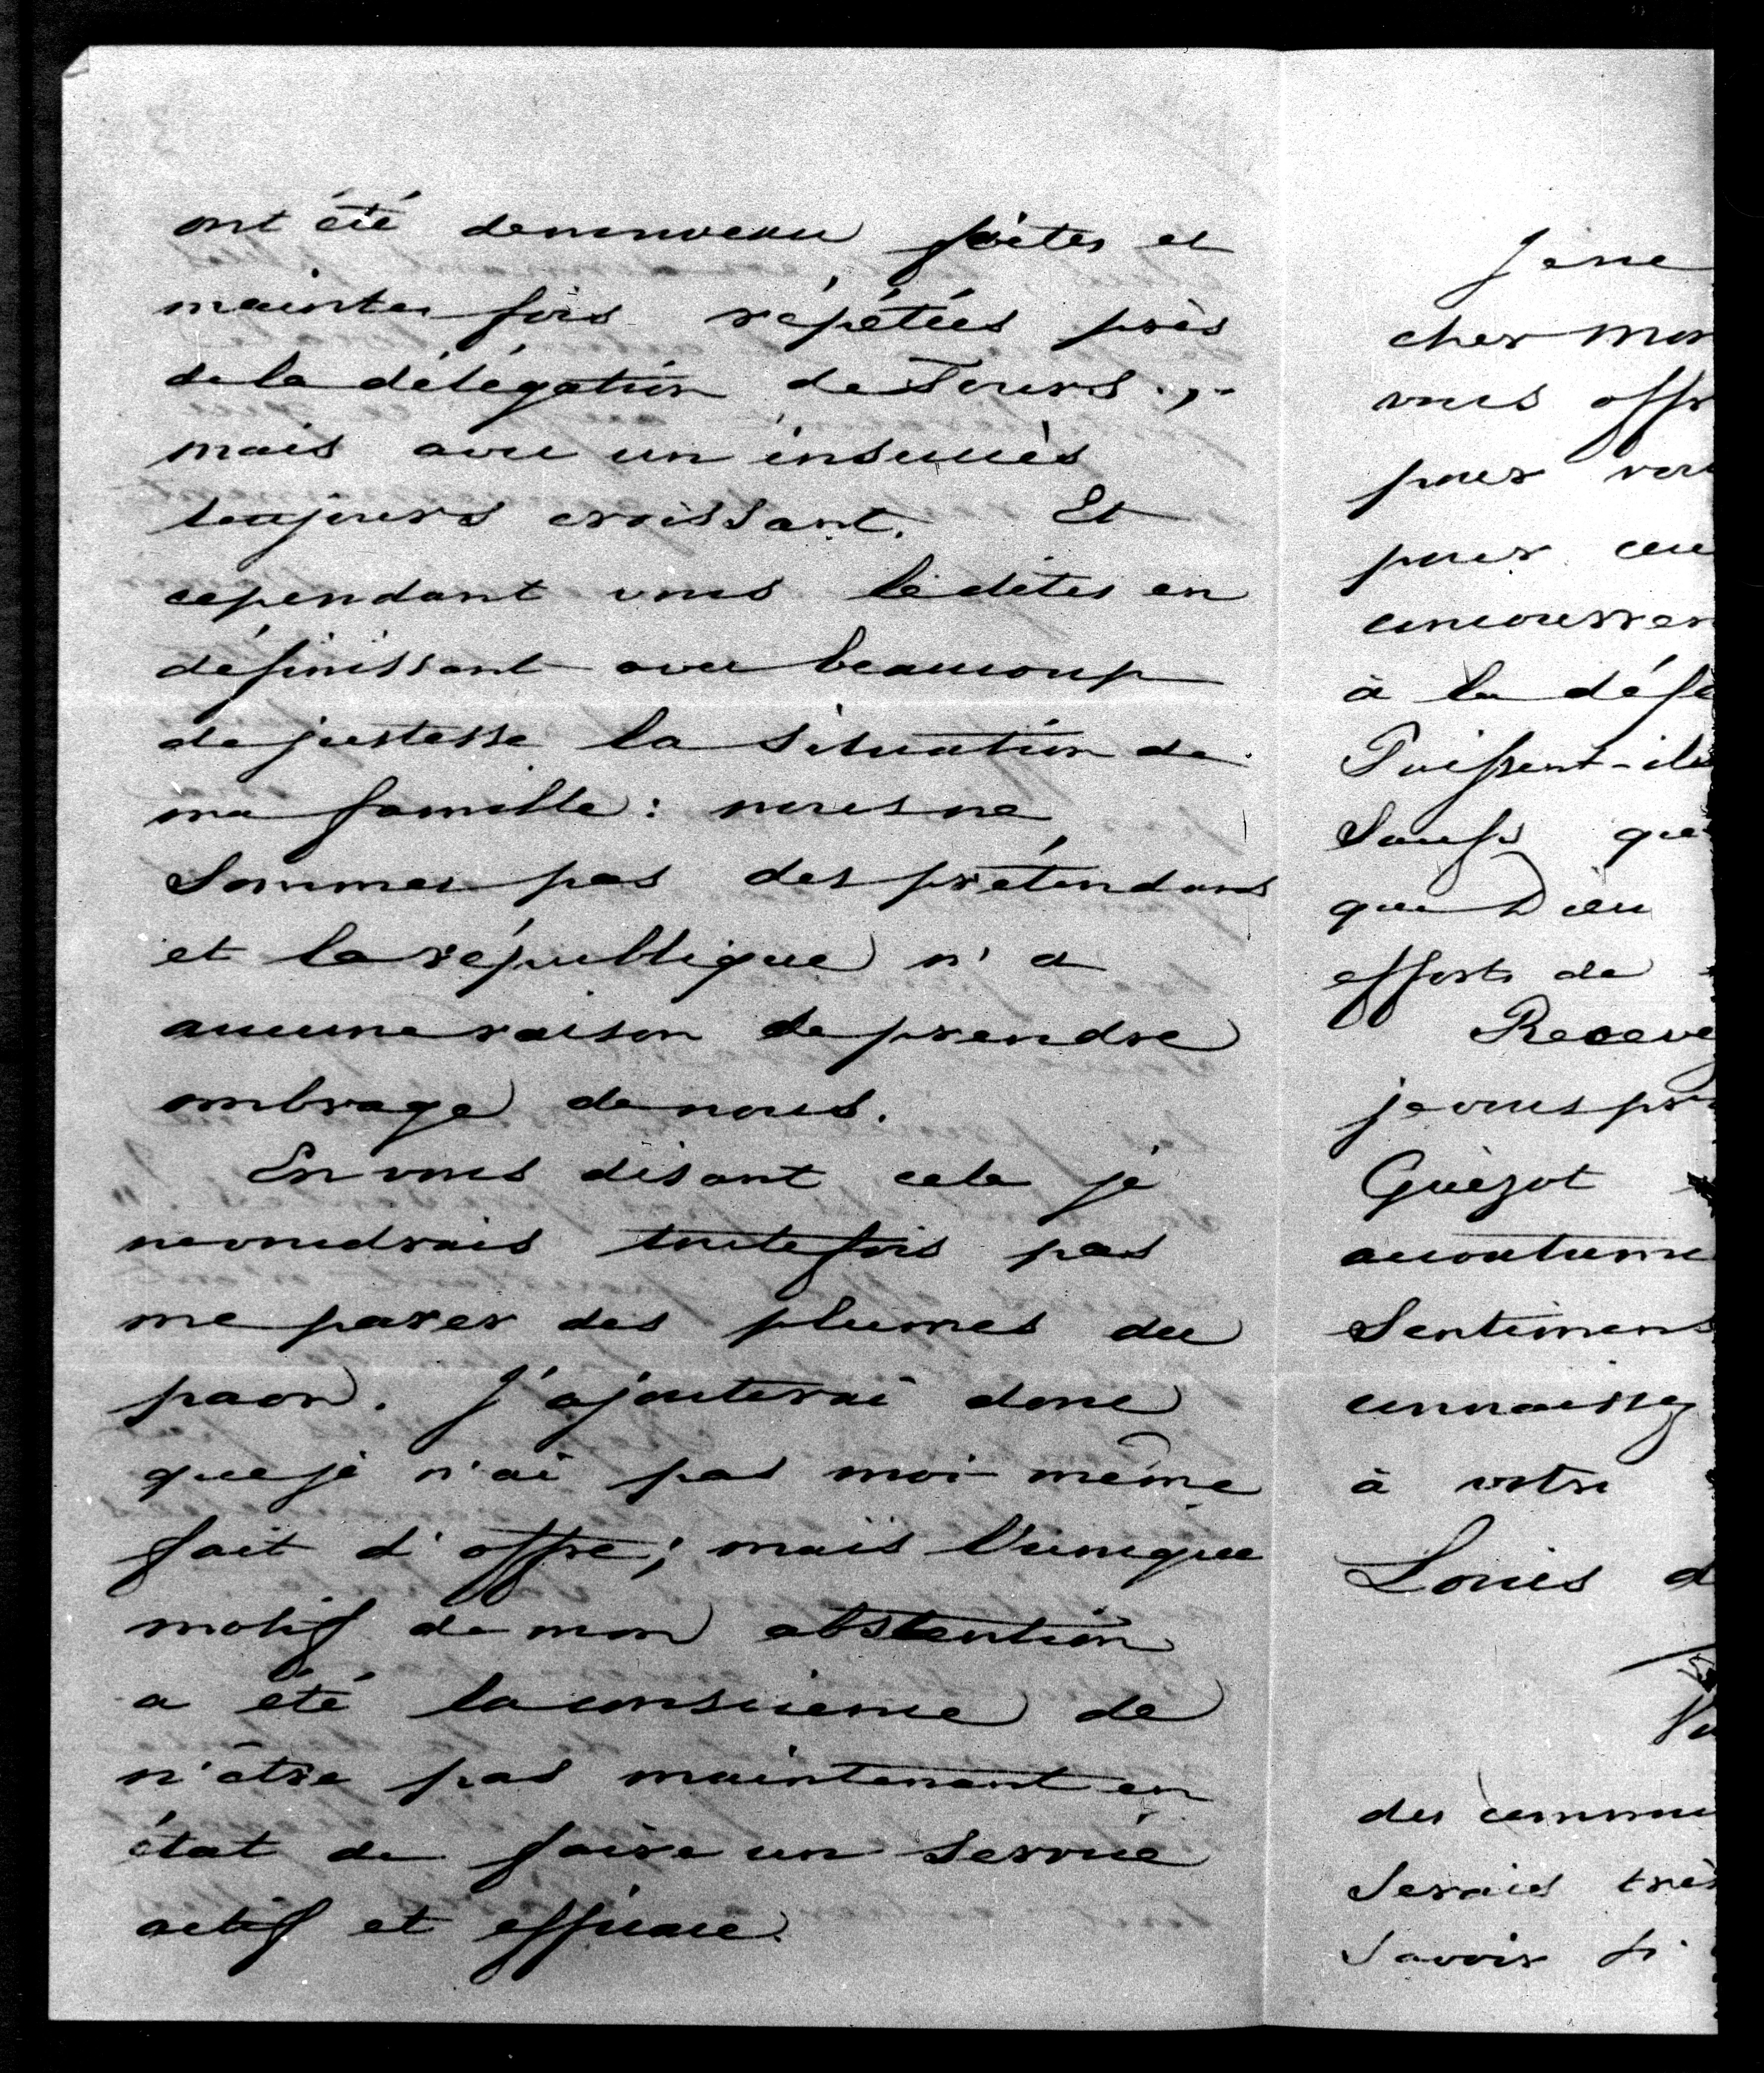 ont été de nouveau faites et
maintes fois répétées près
de la délégation de Tours.,
mais avec un insuccès
toujours croissant. Et
cependant vous le dites en
définissant avec beaucoup
de justesse la situation de
ma famille : nous ne
sommes pas des prétendans
et la république n'a
aucune raison de prendre
ombrage de nous.
En vous disant cela je
ne voudrais toutefois pas
me parer des plumes du
paon. J'ajouterai donc
que je n'ai pas moi-même
fait d'offre ; mais l'unique
motif de mon abstention
a été la conscience de
n'être pas maintenant en
état de faire un service
actif et efficace.
Je ne
cher Mon
vous offr
pour vou
pour ceu
concourren
à la défe
Puissent-ils
saufs que
que Dieu
efforts de
Receve
je vous pr
Guizot
accoutumé
sentimens
connaissez
à votre
Louis d
des commu
serais très
savoir si